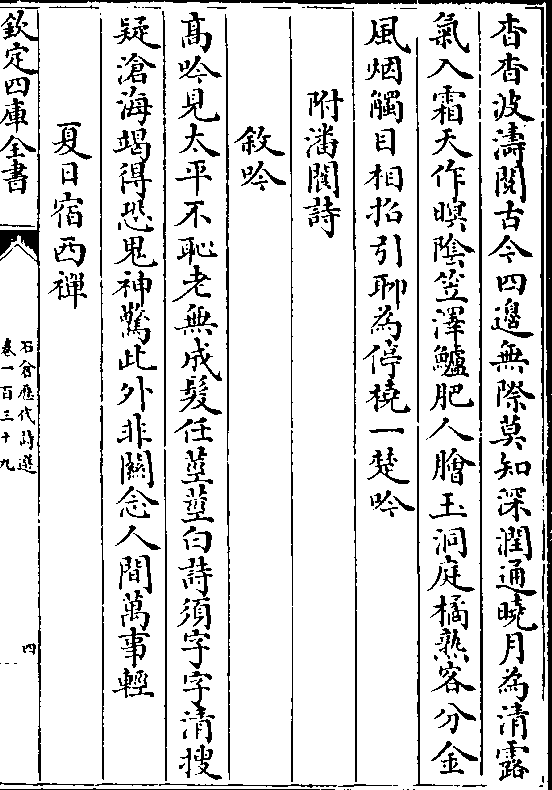 杳杳波濤閱古今四邊無際莫知深潤通曉月為清露
氣入霜天作暝陰笠澤鱸肥人膾玉洞庭橘熟客分金
風烟觸目相招引聊為停橈一楚吟
附潘閬詩
敘吟
高吟見太平不恥老無成髮任莖莖白詩須字字清搜
疑滄海竭得恐鬼神驚此外非關念人間萬事輕
夏日宿西禪
欽定四庫全書
石倉歷代詩選
卷一百三十九
四